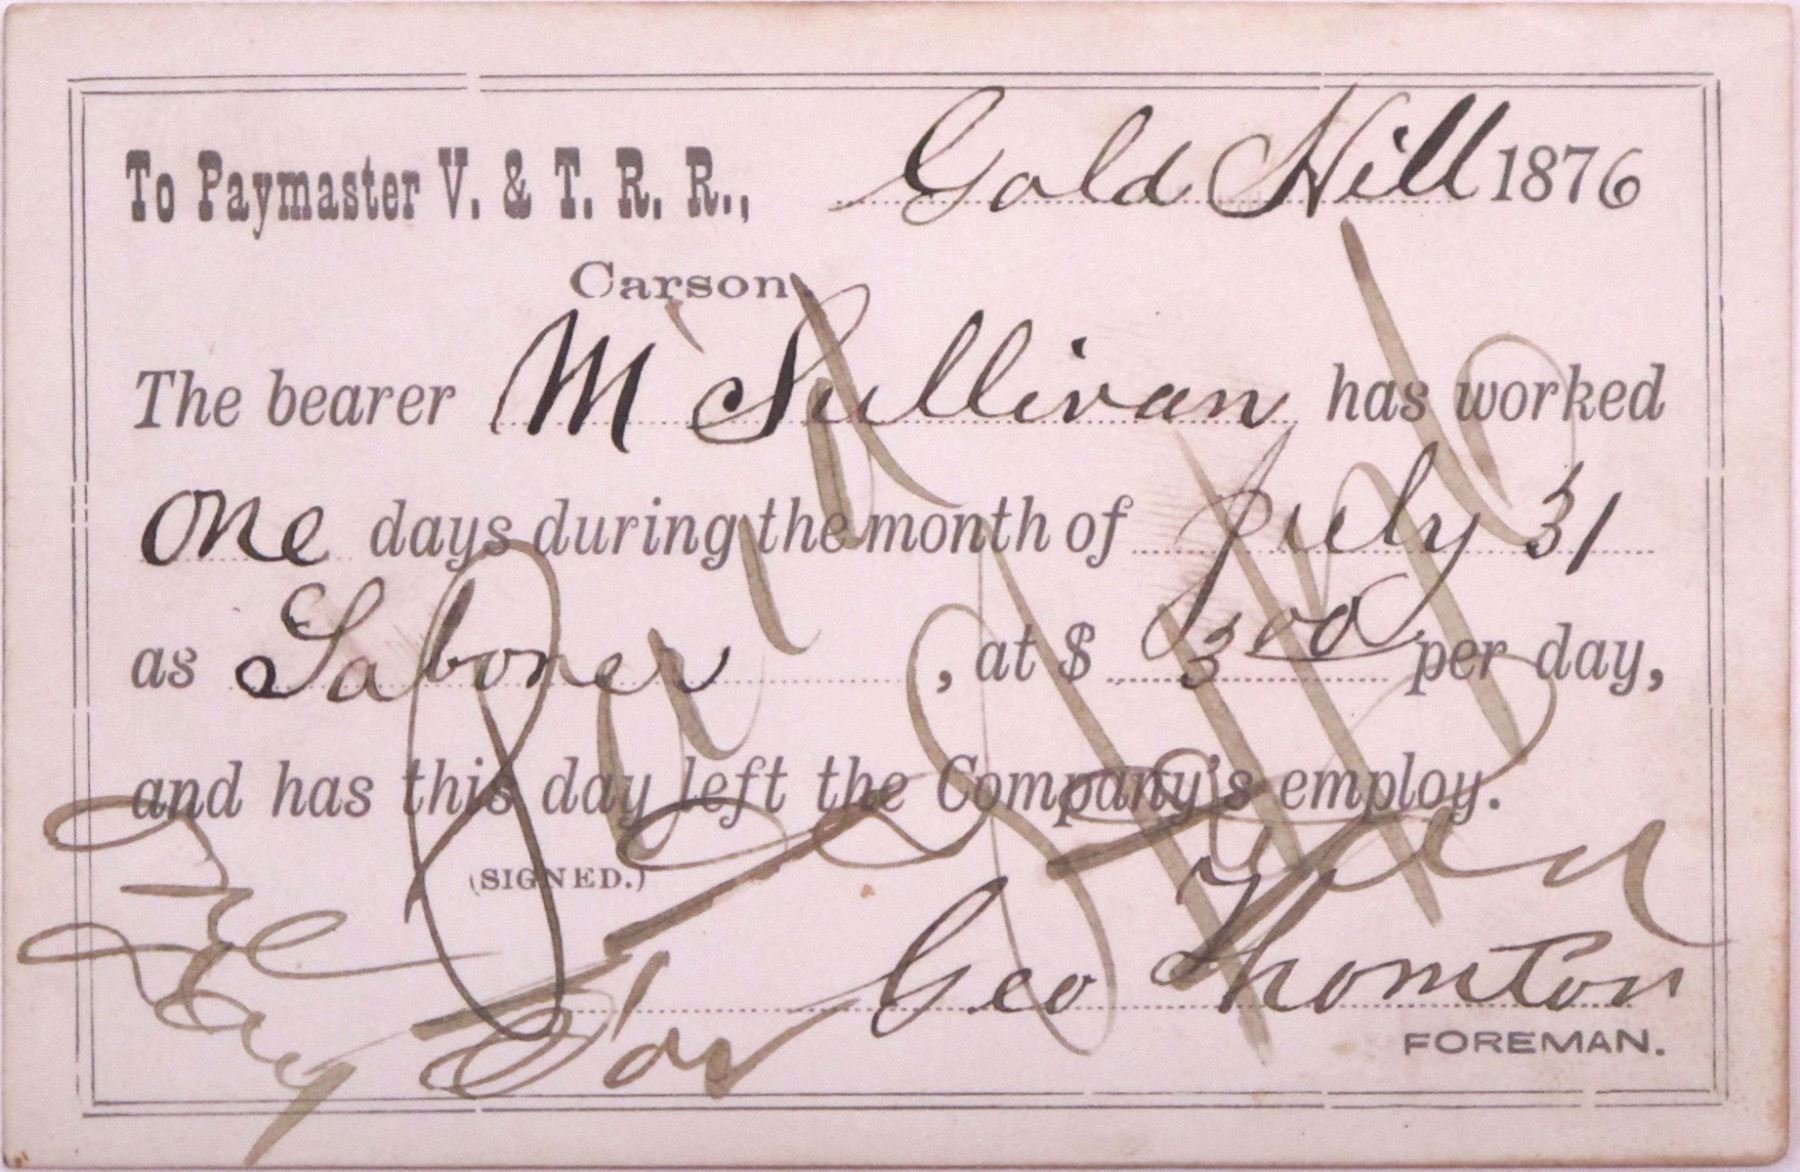 To Paymaster V. & T. R. R., Gold Hill 1876
Carson.
The bearer M Sullivan has worked
One days during the month of July 31
as Laborer, at $ 3 00 per day,
and has this day left the Company's employ.
(SIGNED.)
For Geo Thornton
FOREMAN.